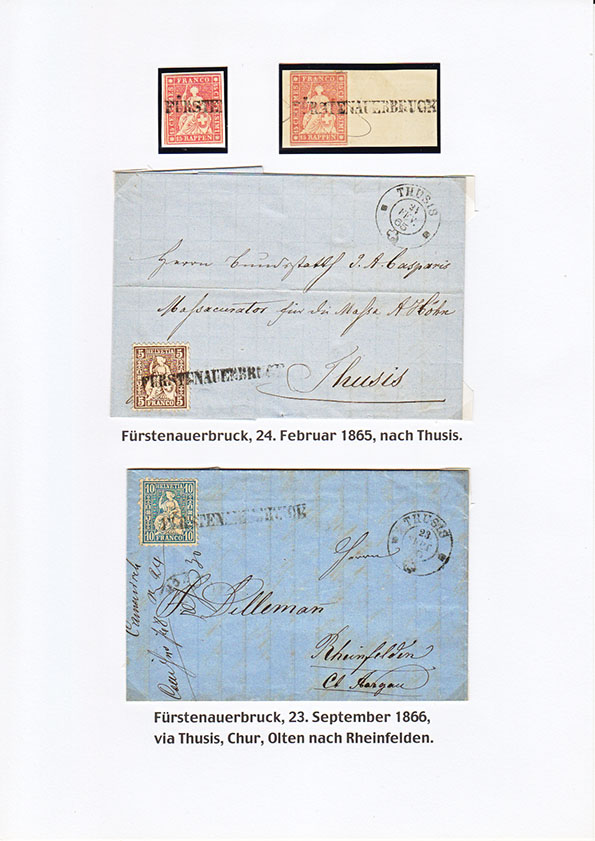 FRANCO
FÜRSTE
15 RAPPEN
FRANCO
RSTENAUERBRUCK
15 RAPPEN
THUSIS
FEV
65
Herrn Bundsstatth J. A. Casparis
Massacurator für die Massa A Höhn
Thusis
5 HELVETIA 5
FÜRSTENAUERBRUCK
5 FRANCO 5
Fürstenauerbruck, 24. Februar 1865, nach Thusis.
10 HELVETIA 10
FÜRSTENAUERBRUCK
10 FRANCO 10
THUSIS
23
SEPT
Herrn
Billeman
Rheinfelden
Ct Aargau
Fürstenauerbruck, 23. September 1866,
via Thusis, Chur, Olten nach Rheinfelden.